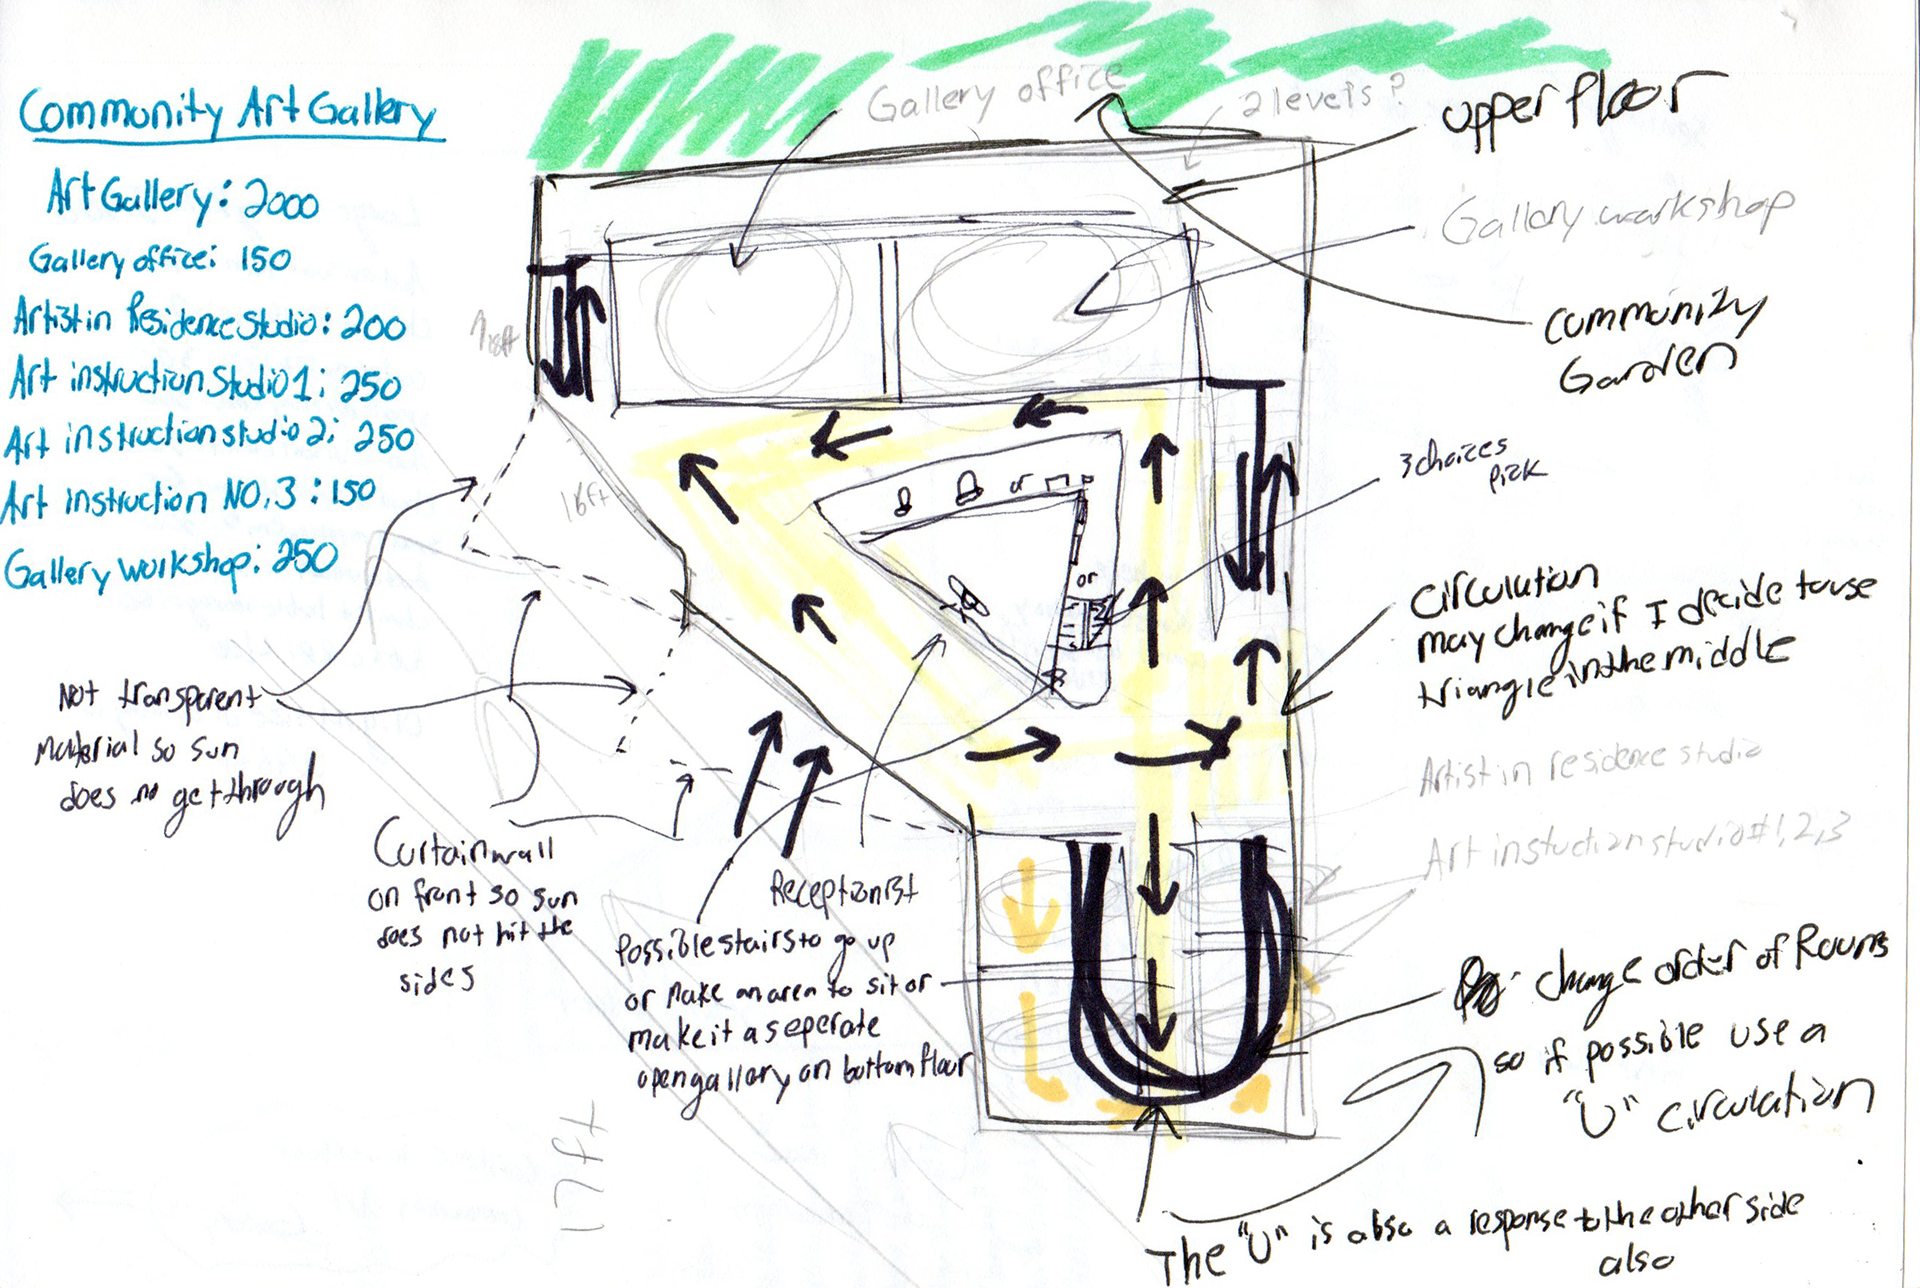 Community Art Gallery
Art Gallery: 2000
Gallery office: 150
Artist in Residence Studio: 200
Art instruction Studio 1: 250
Art instruction studio 2: 250
Art instruction NO. 3 : 150
Gallery workshop: 250
Gallery office
2 levels ?
upper floor
Gallery workshop
Community
Garden
3 choices
pick
16ft
or
or
Circulution
may change if I decide to use
triangle in the middle
Artist in residence studio
Art instuction studio #1,2,3
change order of Rooms
so if possible use a
"U" circulation
The "U" is also a response to the other side
also
Not transparent
Material so sun
does no get through
Curtain wall
on front so sun
does not hit the
sides
Receptionist
Possible stairs to go up
or Make an area to sit or
make it a seperate
open gallery on bottom floor